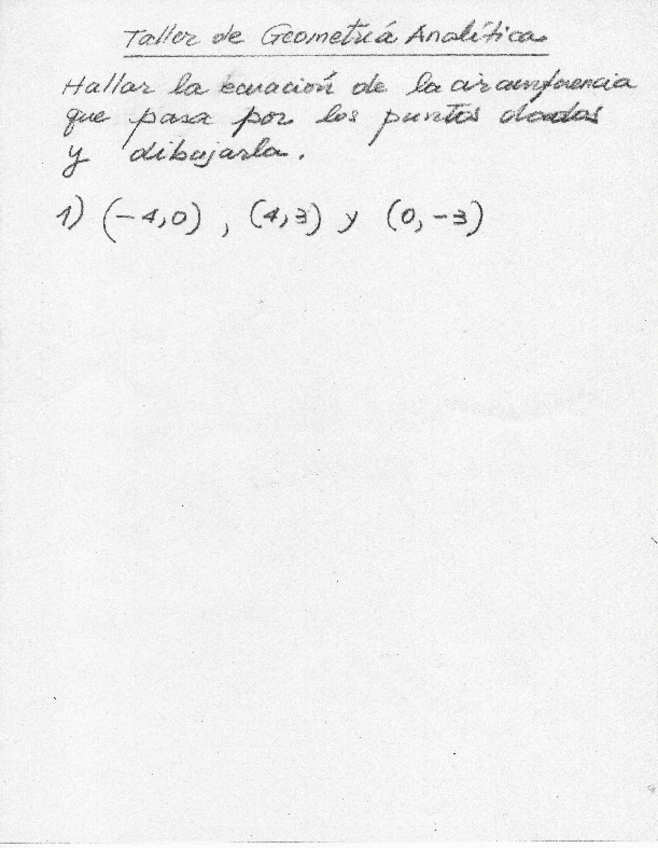 Taller de Geometría Analítica
Hallar la ecuación de la circunferencia
que pasa por los puntos dados
y dibujarla.
1) (-4,0), (4,3) y (0,-3)